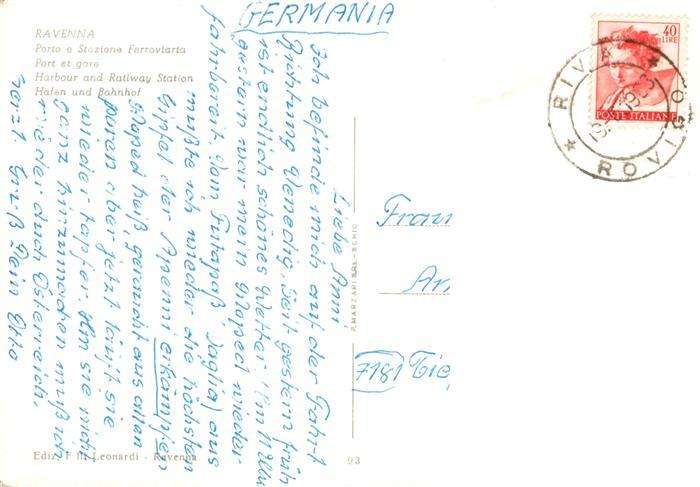 RAVENNA
Porto e Stazione Ferroviaria
Port et gare
Harbour and Railway Station
Hafen und Bahnhof
GERMANIA
40
LIRE
POSTE ITALIANE
RIVA
ROVIGO
Liebe Anni
Ich befinde mich auf der Fahrt
Richtung Venedig, seit gestern früh
ist endlich schönes Wetter. Um 11 Uhr
gestern war mein Moped wieder
fahrbereit. Vom Futapaß, aus
mußte ich wieder die höchsten
Gipfel der Apenni erkämpfen
Moped heiß, geraucht aus allen
Poren aber jetzt läuft sie
wieder tapfer. Um sie nicht
ganz hinzumachen muß ich
wieder durch Österreich.
Herzl. Gruß Dein Otto
Frau
An
7181 Tie
P. MARZARI S.R.L. - SCHIO
Ediz. F.lli Leonardi - Ravenna
93